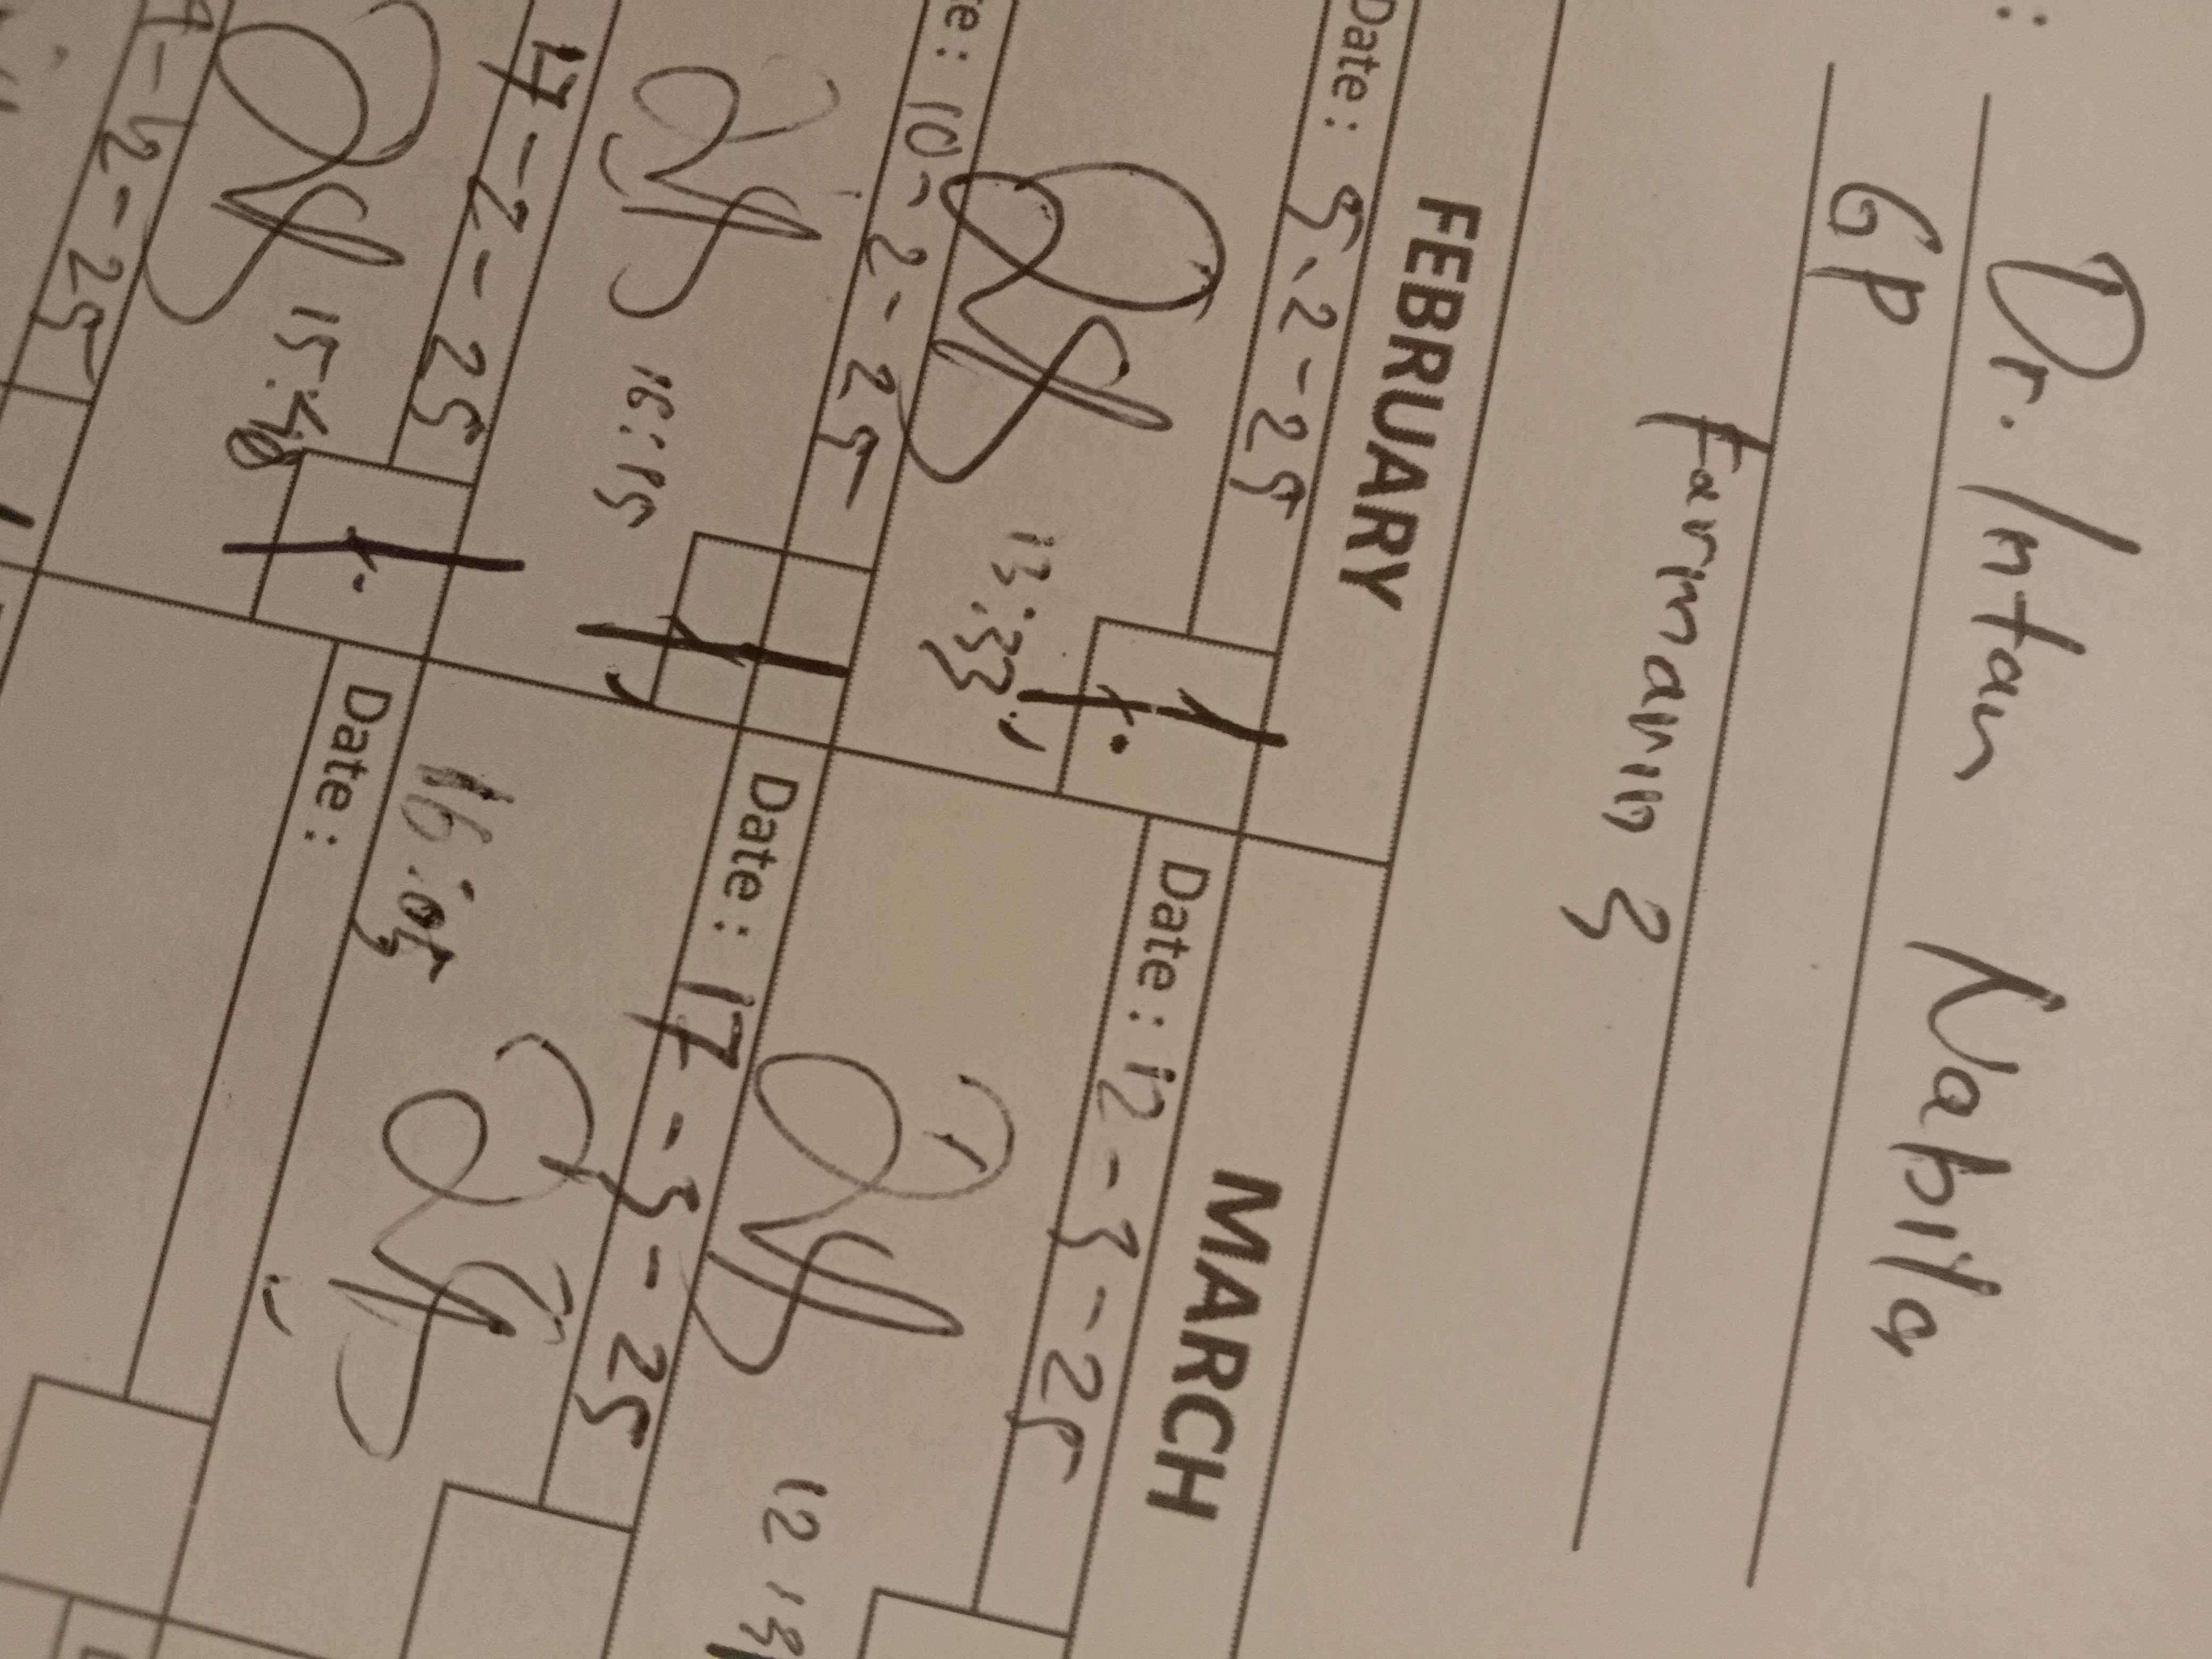 :
Dr. Intan Nabila
GP
Farmanin 3
FEBRUARY
MARCH
Date : 5-2-25
Date : 12-3-25
13:33
12
te : 10-2-25
Date : 17-3-25
16:15
16:05
17-2-25
Date :
15:40
-2-25